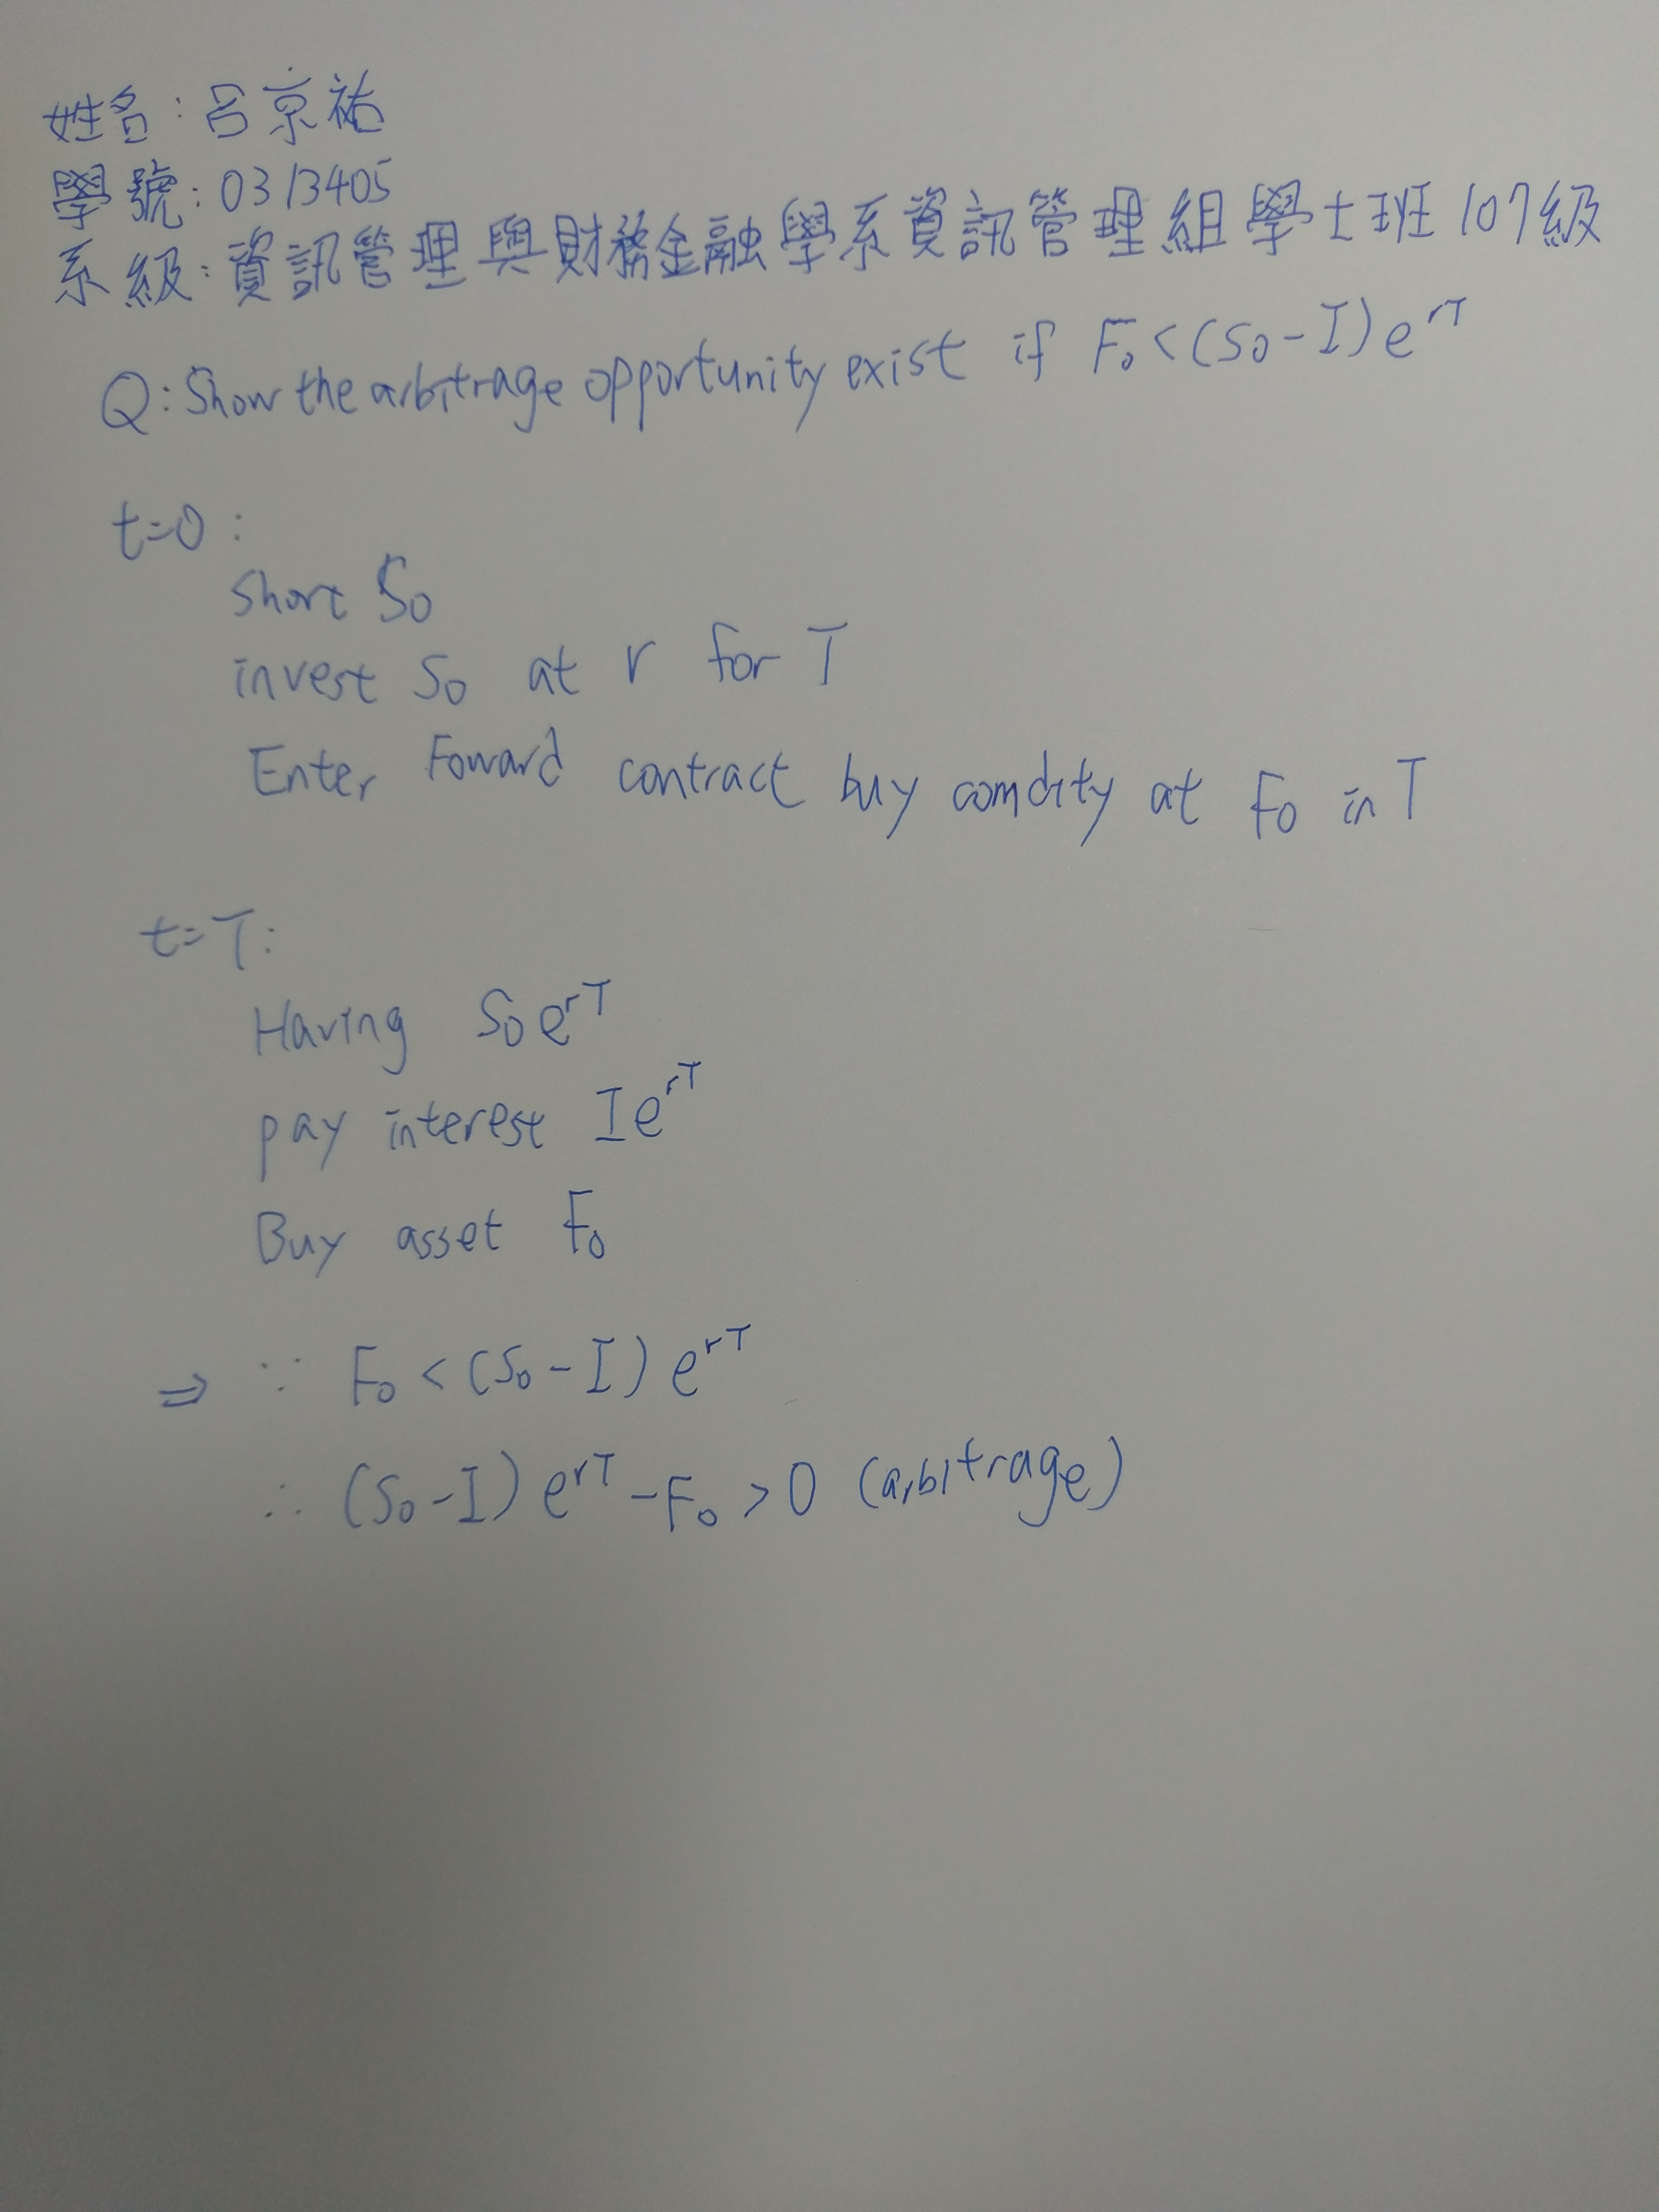 姓名:呂京祐
學號:0313405
系級:資訊管理與財務金融學系資訊管理組學士班107級
Q:Show the arbitrage opportunity exist if F₀<(S₀-I)e^rT
t=0:
Short S₀
invest S₀ at r for T
Enter Foward contract buy comdity at F₀ in T
t=T:
Having S₀e^rT
pay interest Ie^rT
Buy asset F₀
⇒ ∵ F₀<(S₀-I)e^rT
∴ (S₀-I)e^rT-F₀>0 (arbitrage)